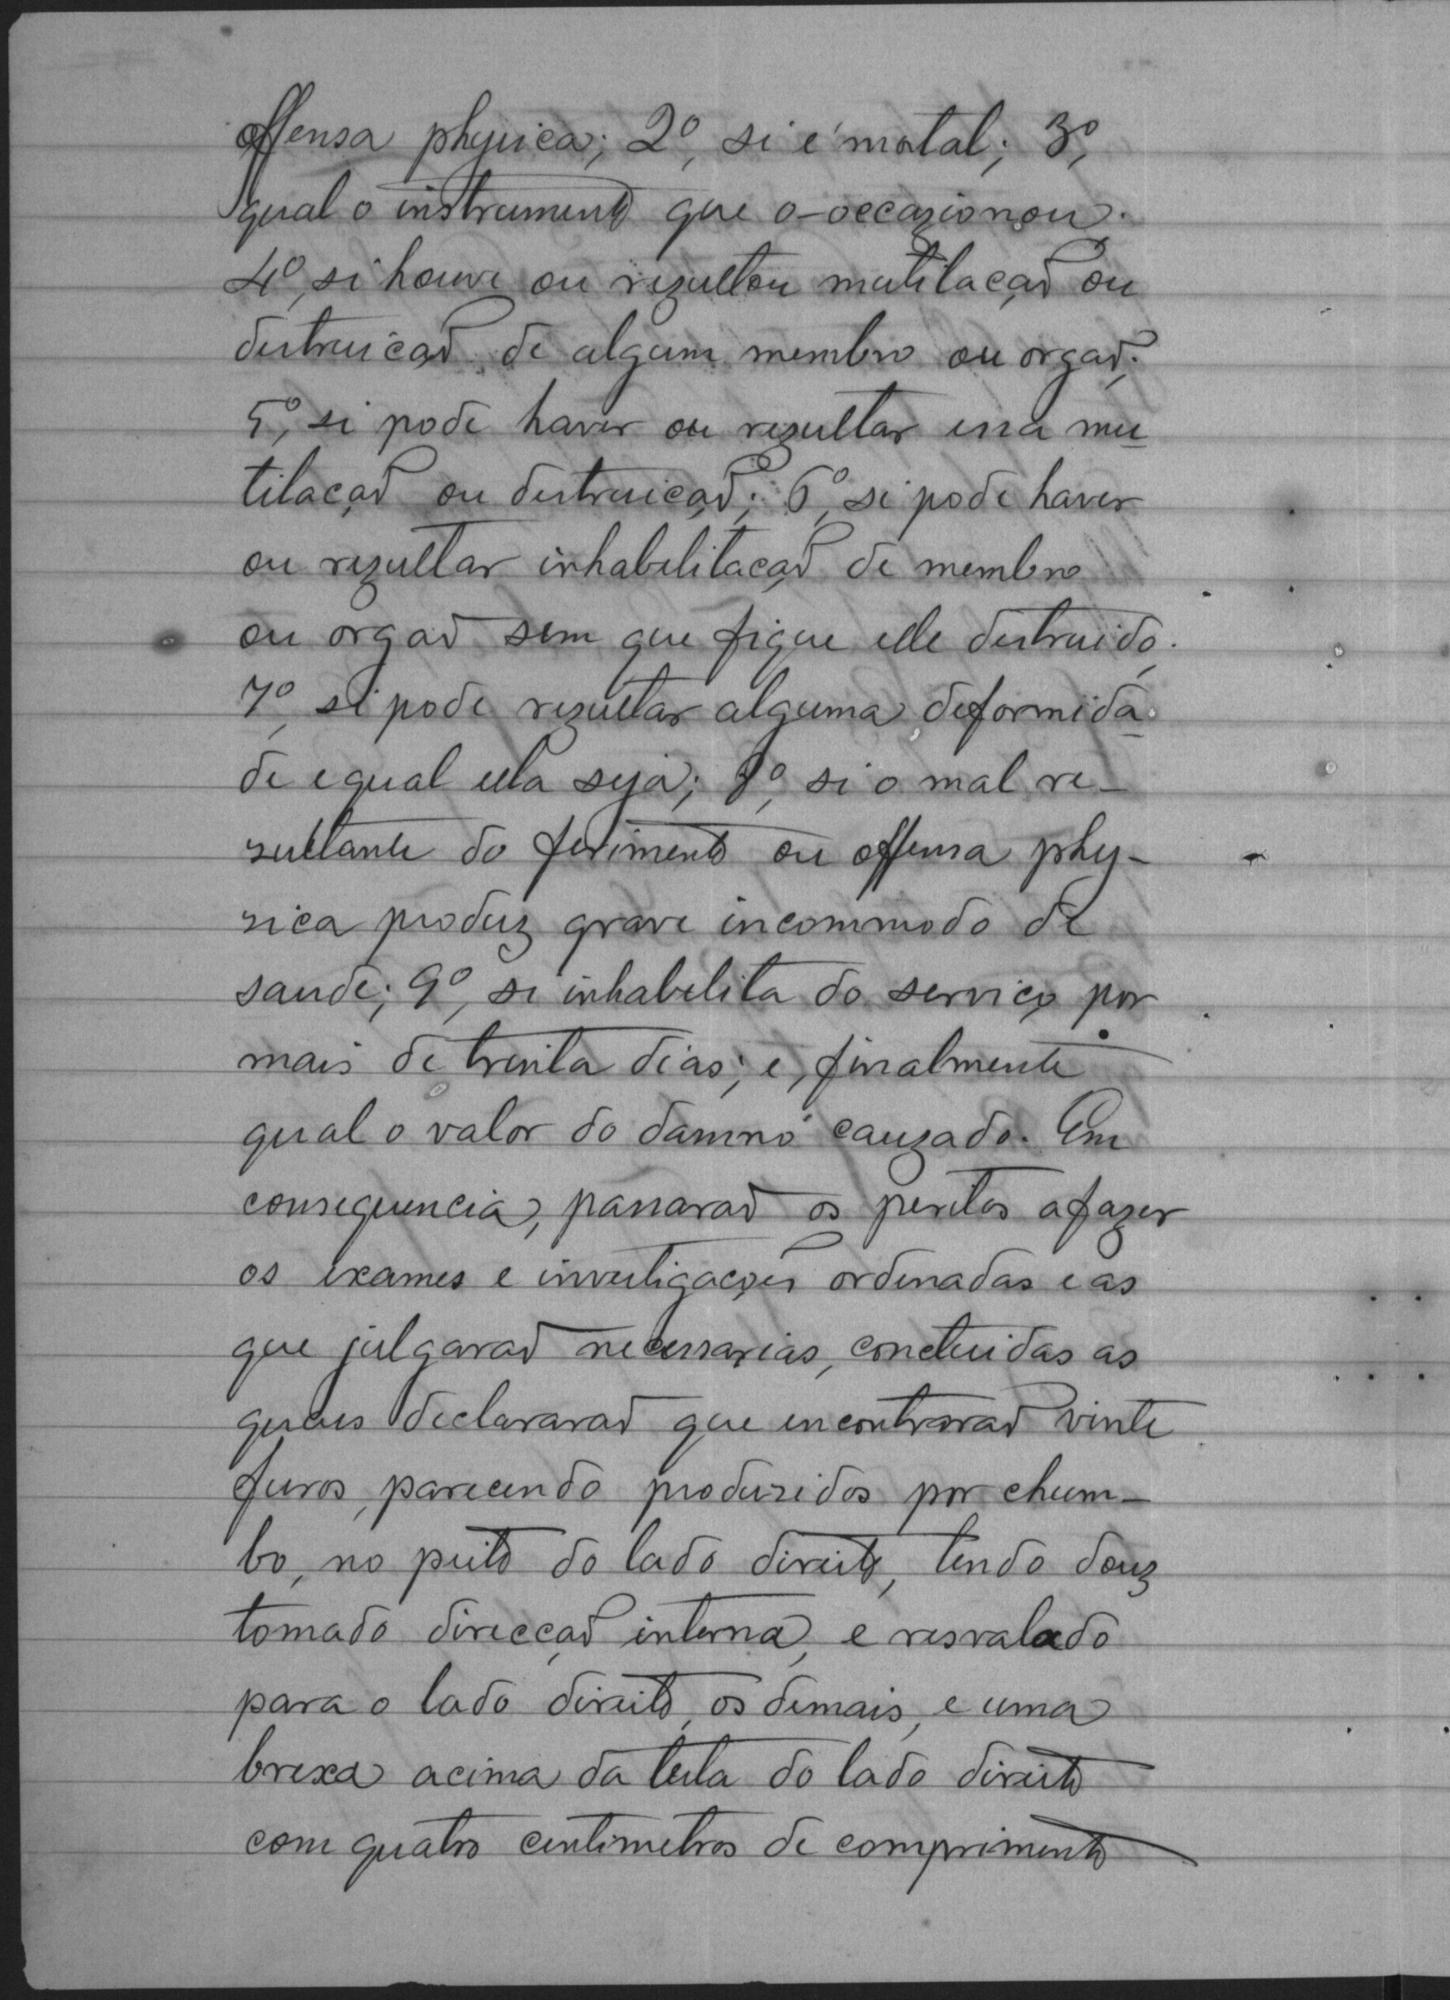 offensa physica; 2º, si é mortal; 3º,
qual o instrumento que o-occazionou.
4º, si houve ou rezultou mutilação ou
destruição de algum membro ou orgaõ;
5º, si pode haver ou rezultar essa mu
tilação ou destruição; 6º, si pode haver
ou rezultar inhabilitação de membro
ou orgaõ sem que fique elle destruido;
7º, si pode rezultar alguma deformida
de e qual ella seja; 8º, si o mal re-
sultante do ferimento ou offensa phy-
sica produz grave incommodo de
saude; 9º, si inhabilita do serviço por
mais de trinta dias; e, finalmente
qual o valor do damno cauzado. Em
consequencia, passaraõ os peritos a fazer
os exames e investigações ordenadas e as
que julgaraõ necessarias, concluidas as
quaes declararaõ que encontraraõ vinte
furos, parecendo produzidos por chum-
bo, no peito do lado direito, tendo douz
tomado direcçaõ interna, e resvalado
para o lado direito, os demais, e uma
brexa acima da teta do lado direito
com quatro centimetros de comprimento